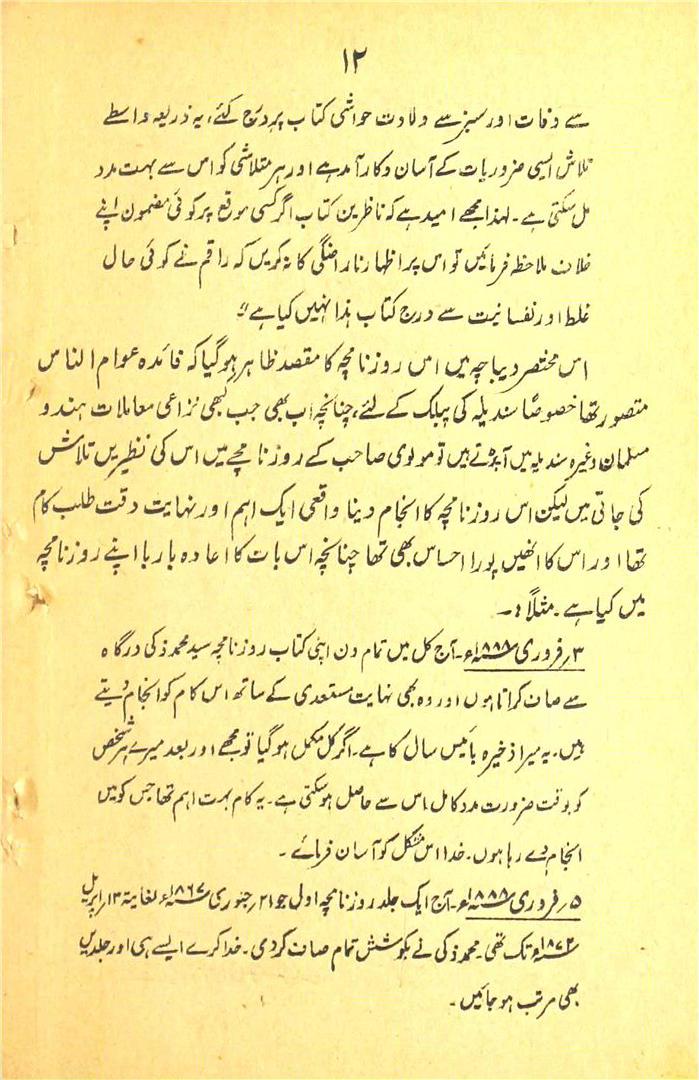 ۱۲
سے وفات اور سبز سے ولادت حواشی کتاب پر درج کئے، یہ ذریعہ واسطے
تلاش ایسی ضروریات کے آسان وکارآمد ہے اور ہر متلاشی کو اس سے بہت مدد
مل سکتی ہے۔ لہذا مجھے امید ہے کہ ناظرین کتاب اگر کسی موقع پر کوئی مضمون اپنے
خلاف ملاحظہ فرمائیں تو اس پر اظہار ناراضگی کا نہ کریں کہ راقم نے کوئی حال
غلط اور نفسانیت سے درج کتاب ہذا نہیں کیا ہے"
اس مختصر دیباچہ میں اس روزنامچہ کا مقصد ظاہر ہوگیا کہ فائدہ عوام الناس
متصور تھا خصوصًا سندیلہ کی پبلک کے لئے، چنانچہ اب بھی جب کبھی نزاعی معاملات ہندو
مسلمان وغیرہ سندیلہ میں آپڑتے ہیں تو مولوی صاحب کے روزنامچے میں اس کی نظیریں تلاش
کی جاتی ہیں لیکن اس روزنامچہ کا انجام دینا واقعی ایک اہم اور نہایت دقت طلب کام
تھا اور اس کا انھیں پورا احساس بھی تھا چنانچہ اس بات کا اعادہ بار بار اپنے روزنامچہ
میں کیا ہے۔ مثلاً:۔
۳؍ فروری ۱۸۸۸ء۔ آج کل میں تمام دن اپنی کتاب روزنامچہ سید محمد ذکی درگاہ
سے صاف کراتا ہوں اور وہ بھی نہایت مستعدی کے ساتھ اس کام کو انجام دیتے
ہیں۔ یہ میرا ذخیرہ بائیس سال کا ہے۔ اگر کل مکمل ہوگیا تو مجھے اور بعد میرے ہر شخص
کو بوقت ضرورت مدد کامل اس سے حاصل ہوسکتی ہے۔ یہ کام بہت اہم تھا جس کو میں
انجام دے رہا ہوں۔ خدا اس مشکل کو آسان فرمائے۔
۵؍ فروری ۱۸۸۸ء۔ آج ایک جلد روزنامچہ اولیٰ جو ۲۱؍ جنوری ۱۸۶۷ء لغایتہ ۱۳؍ اپریل
۱۸۷۲ء تک تھی۔ محمد ذکی نے بکوشش تمام صاف کردی۔ خدا کرے ایسے ہی اور جلدیں
بھی مرتب ہوجائیں۔